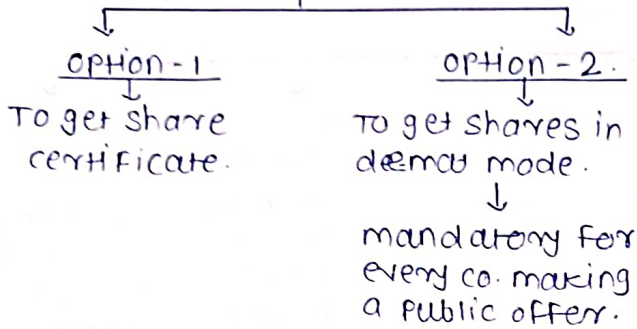 OPTION - 1
To get share
certificate.
OPTION - 2.
To get shares in
deemat mode.
mandatory for
every co. making
a public offer.